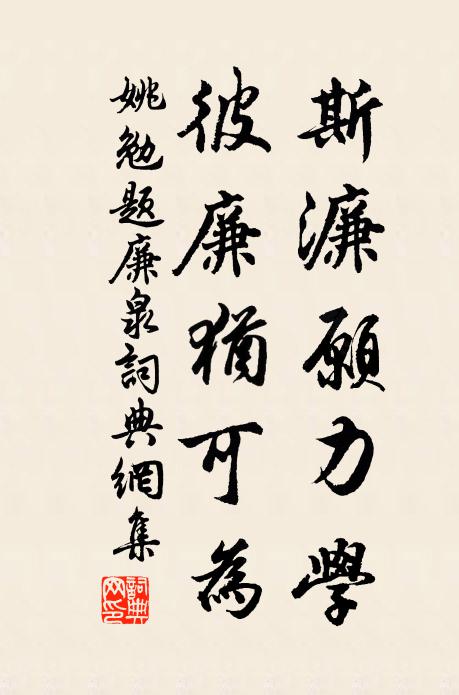 斯濂願力學
彼廉猶可為
姚勉題廉泉詞典網集
詞典網印